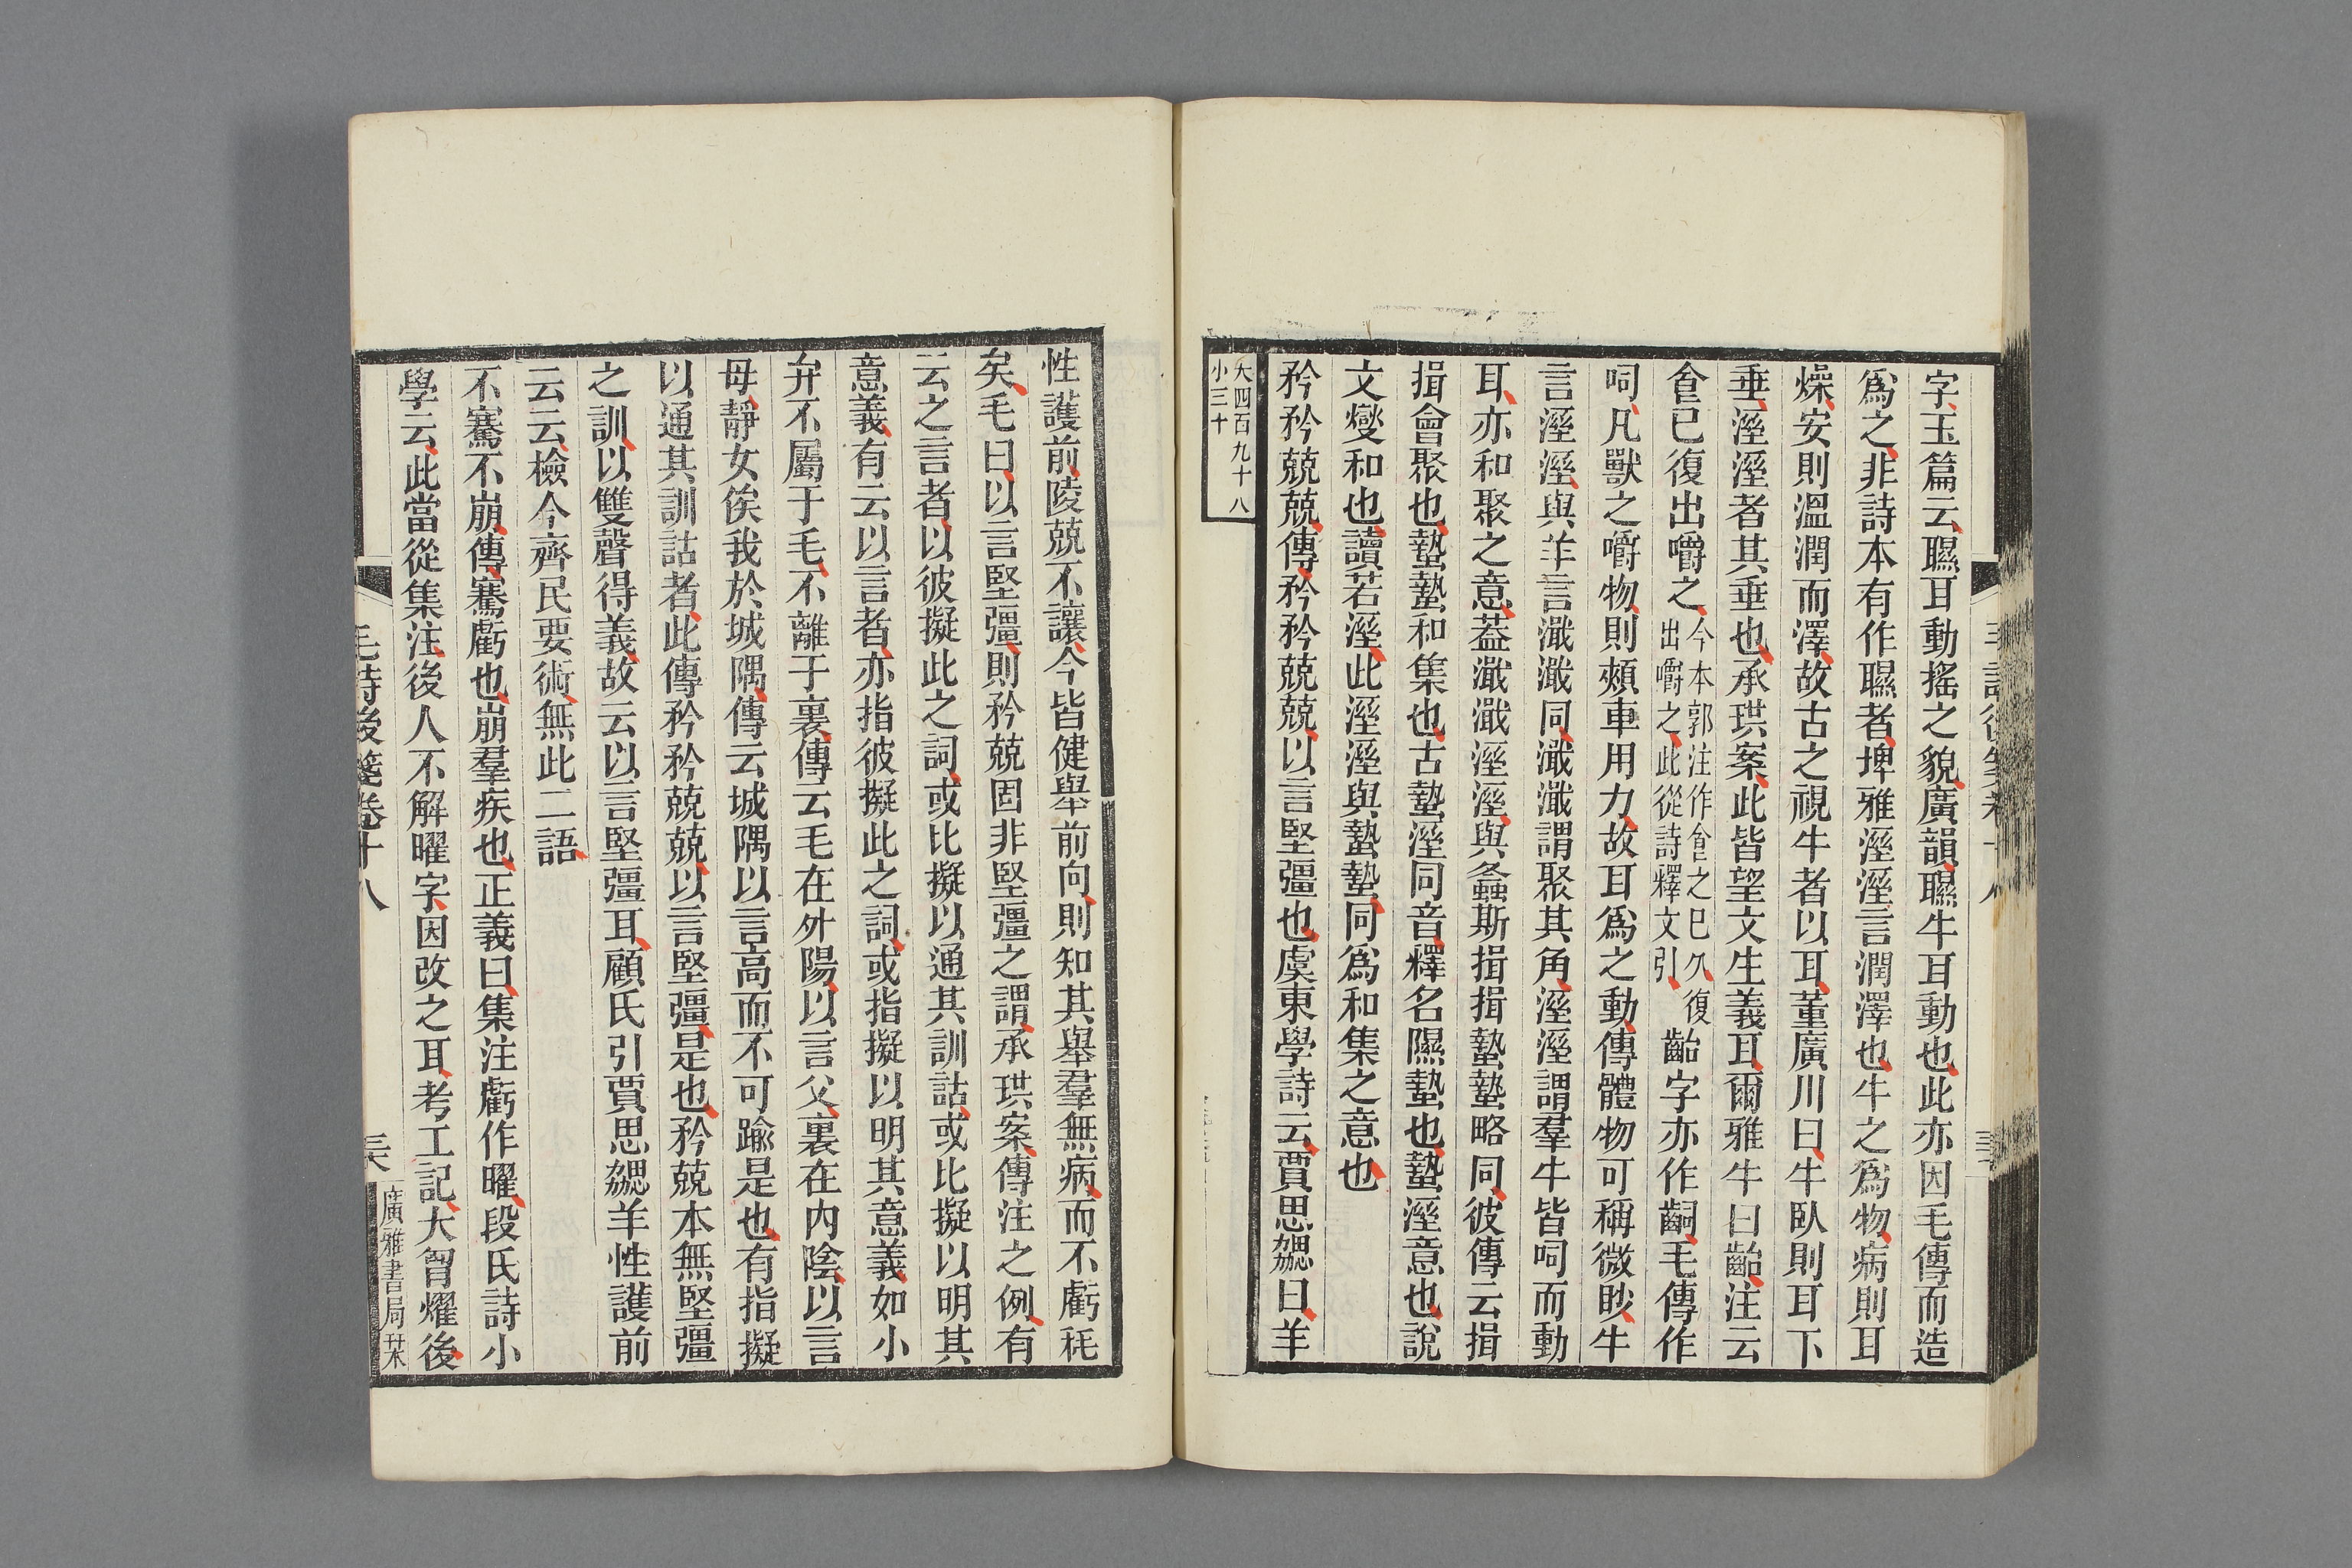 字玉篇云𦗕耳動搖之貌廣韻𦗕牛耳動也此亦因毛傳而造
爲之非詩本有作𦗕者埤雅溼溼言潤澤也牛之爲物病則耳
燥安則溫潤而澤故古之視牛者以耳董廣川曰牛臥則耳下
垂溼溼者其垂也承珙案此皆望文生義耳爾雅牛曰齝注云
食已復出嚼之今本郭注作食之已久復
出嚼之此從詩釋文引齝字亦作齣毛傳作
呞凡獸之嚼物則頰車用力故耳爲之動傳體物可稱微眇牛
言溼溼與羊言濈濈同濈濈謂聚其角溼溼謂羣牛皆呞而動
耳亦和聚之意葢濈濈溼溼與螽斯揖揖蟄蟄略同彼傳云揖
揖會聚也蟄蟄和集也古蟄溼同音釋名隰蟄也蟄溼意也說
文燮和也讀若溼此溼溼與蟄蟄同爲和集之意也
矜矜兢兢傳矜矜兢兢以言堅彊也虞東學詩云賈思勰曰羊
大四百九十八
小三十
性護前陵兢不讓今皆健舉前向則知其舉羣無病而不虧秏
矣毛曰以言堅彊則矜兢固非堅彊之謂承珙案傳注之例有
云之言者以彼擬此之詞或比擬以通其訓詁或比擬以明其
意義有云以言者亦指彼擬此之詞或指擬以明其意義如小
弁不屬于毛不離于裏傳云毛在外陽以言父裏在內陰以言
母靜女俟我於城隅傳云城隅以言高而不可踰是也有指擬
以通其訓詁者此傳矜矜兢兢以言堅彊是也矜兢本無堅彊
之訓以雙聲得義故云以言堅彊耳顧氏引賈思勰羊性護前
云云檢今齊民要術無此二語
不騫不崩傳騫虧也崩羣疾也正義曰集注虧作曜段氏詩小
學云此當從集注後人不解曜字因改之耳考工記大胷燿後
毛詩後箋卷十八
三六
廣雅書局栞